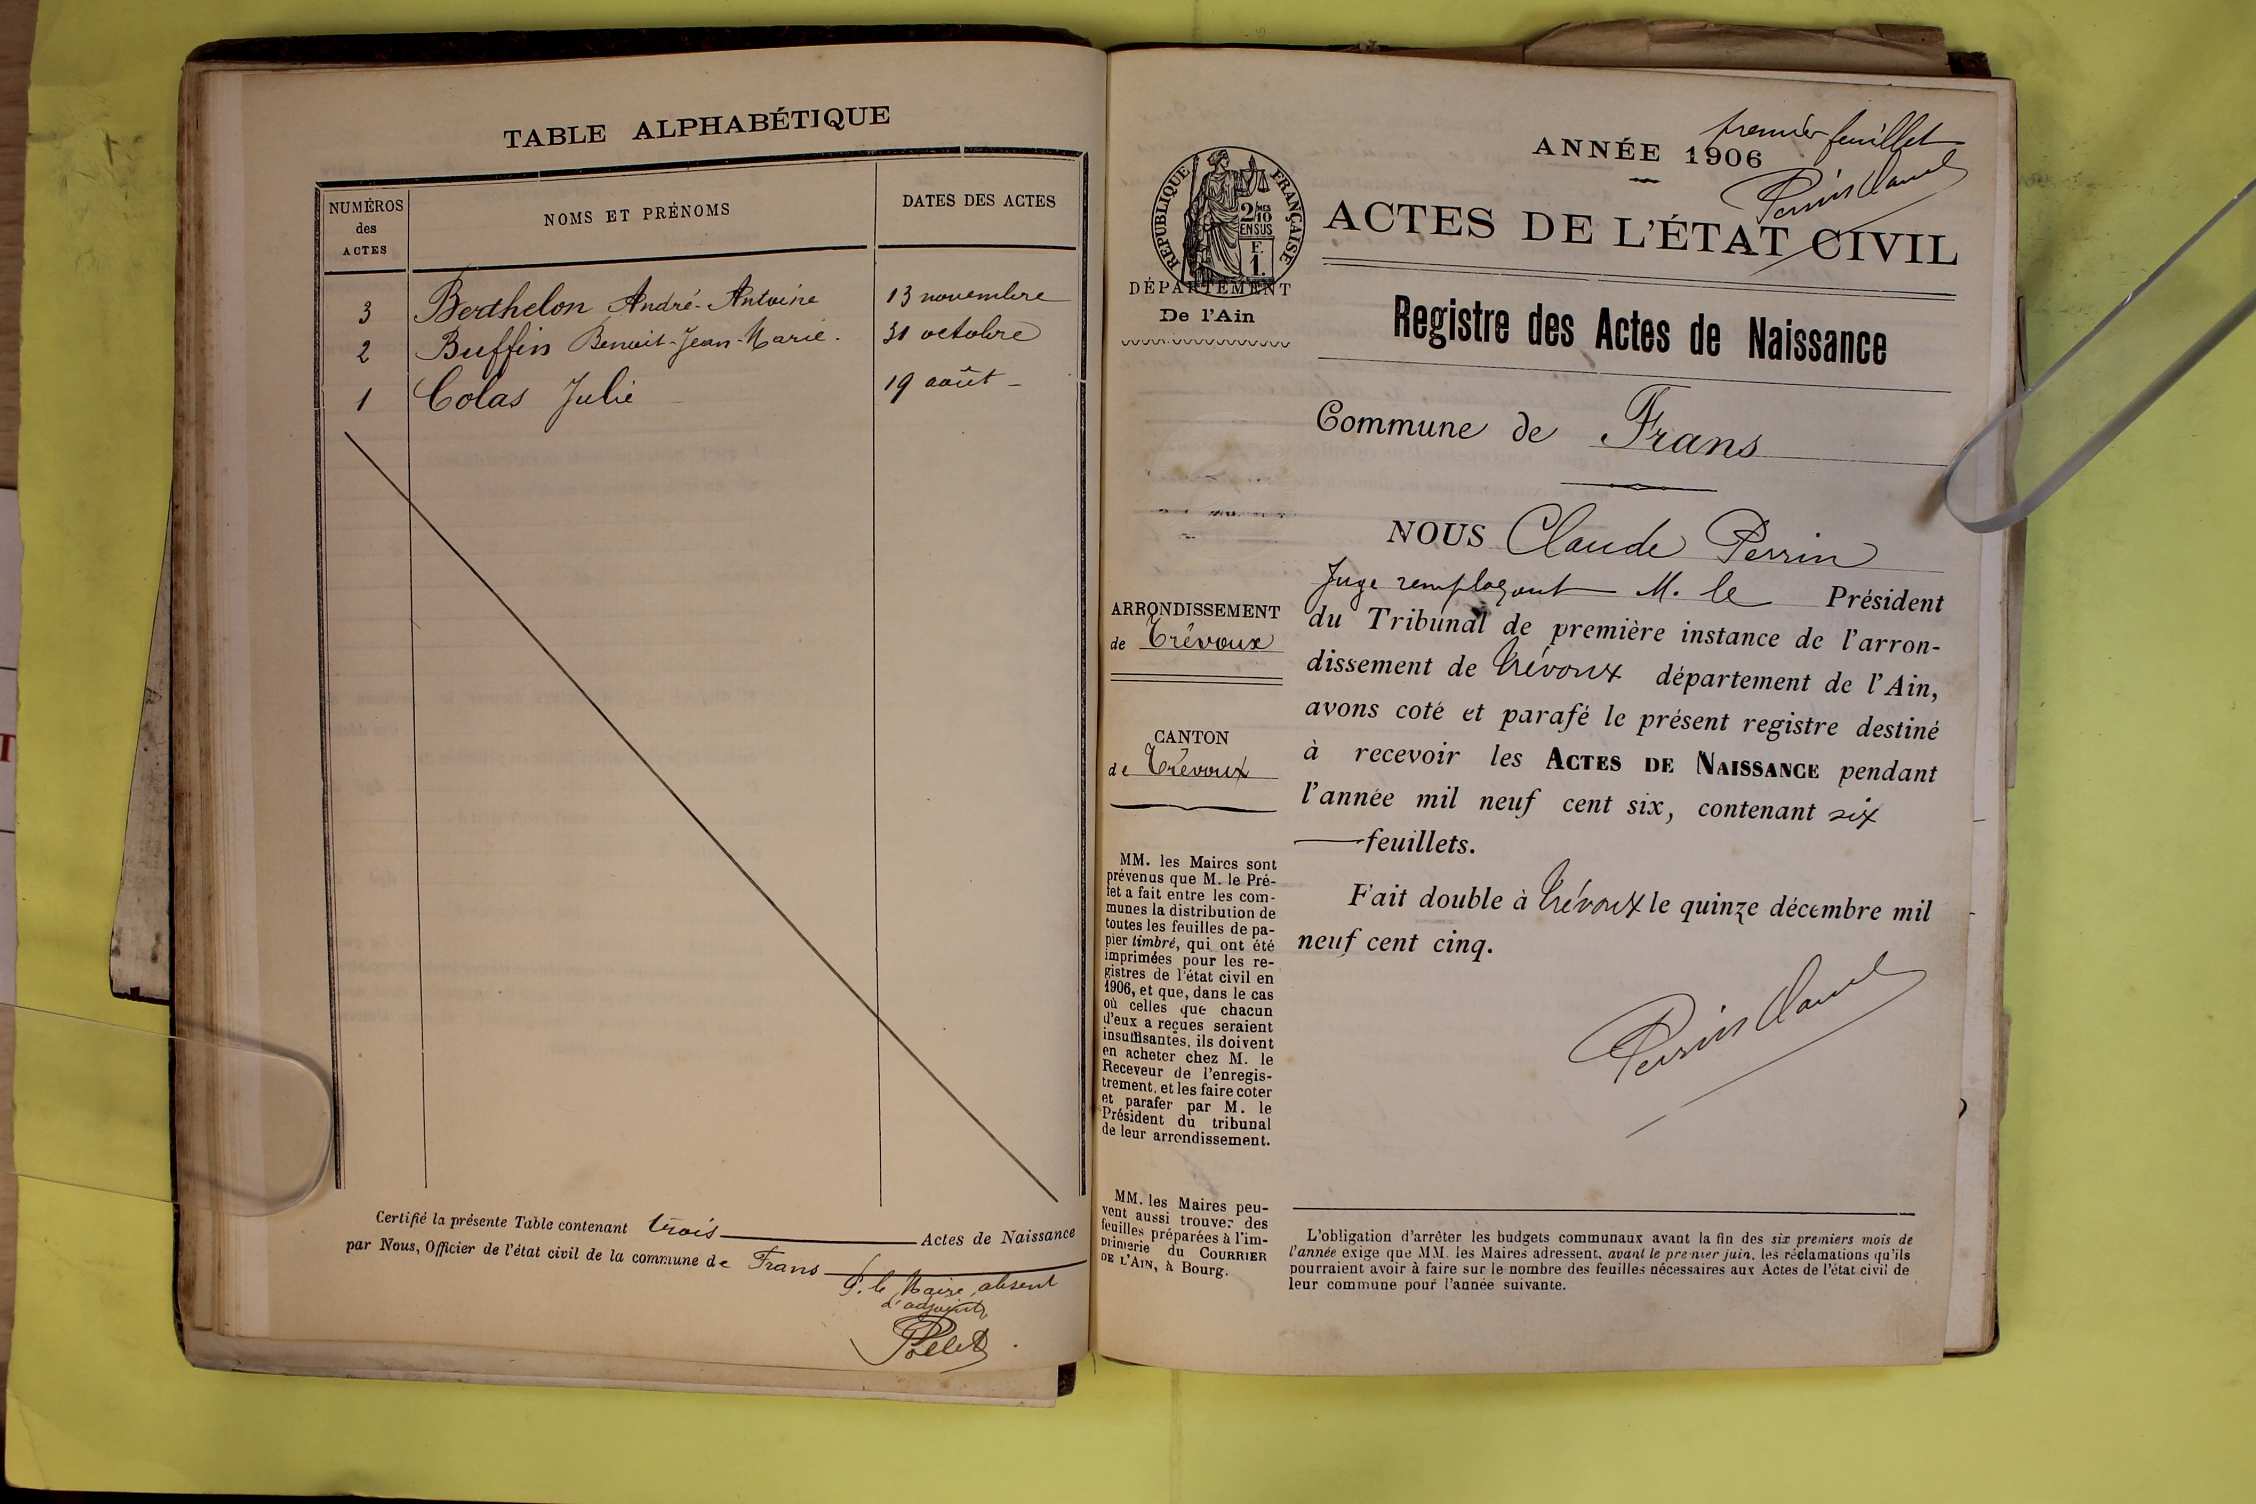 TABLE ALPHABÉTIQUE
NUMÉROS des ACTES
NOMS ET PRÉNOMS
DATES DES ACTES
3 Berthelon André-Antoine 13 novembre
2 Buffin Benoit-Jean-Marie. 31 octobre
1 Colas Julie 19 août
Certifié la présente Table contenant trois Actes de Naissance
par Nous, Officier de l'état civil de la commune de Frans
P. le Maire, absent
l'adjoint
premier feuillet
ANNÉE 1906
RÉPUBLIQUE FRANÇAISE
2/10
EN SUS
F.
1.
ACTES DE L'ÉTAT CIVIL
DÉPARTEMENT
De l'Ain
Registre des Actes de Naissance
Commune de Frans
NOUS Claude Perrin
Juge remplaçant M. le Président
du Tribunal de première instance de l'arron-
dissement de Trévoux département de l'Ain,
avons coté et parafé le présent registre destiné
à recevoir les ACTES DE NAISSANCE pendant
l'année mil neuf cent six, contenant six
feuillets.
Fait double à Trévoux le quinze décembre mil
neuf cent cinq.
ARRONDISSEMENT
de Trévoux
CANTON
de Trévoux
MM. les Maires sont
prévenus que M. le Pré-
fet a fait entre les com-
munes la distribution de
toutes les feuilles de pa-
pier timbré, qui ont été
imprimées pour les re-
gistres de l'état civil en
1906, et que, dans le cas
où celles que chacun
d'eux a reçues seraient
insuffisantes, ils doivent
en acheter chez M. le
Receveur de l'enregis-
trement, et les faire coter
et parafer par M. le
Président du tribunal
de leur arrondissement.
MM. les Maires peu-
vent aussi trouver des
feuilles préparées à l'im-
primerie du COURRIER
DE L'AIN, à Bourg.
L'obligation d'arrêter les budgets communaux avant la fin des six premiers mois de
l'année exige que MM. les Maires adressent, avant le premier juin, les réclamations qu'ils
pourraient avoir à faire sur le nombre des feuilles nécessaires aux Actes de l'état civil de
leur commune pour l'année suivante.